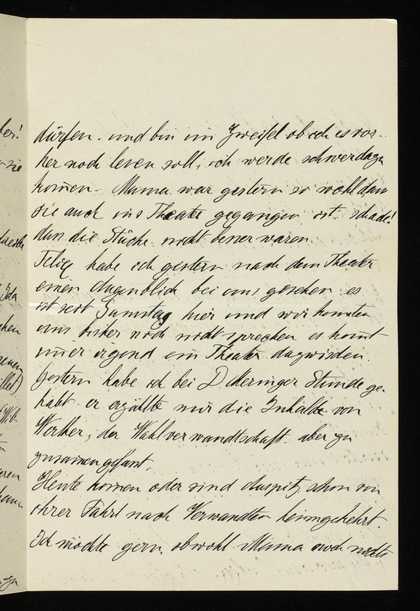 dürfen. und bin im Zweifel ob ich es vor-
her noch lesen soll, ich werde schwer dazu
kommen. Mama war gestern so wohl dass
sie auch ins Theater gegangen ist. schade!
dass die Stücke nicht besser waren.
Felix habe ich gestern nach dem Theater
einen Augenblick bei uns gesehen. es
ist seit Samstag hier und wir konnten
uns bisher noch nicht sprechen es kommt
immer irgend ein Theater dazwischen.
Gestern habe ich bei D Meringer Stunde ge-
habt. er erzählte mir die Inhalte von
Werther, der Wahlverwandtschaft. aber zu
zusammengefasst.
Heute kommen oder sind schon von
ihrer Fahrt nach Verwandten heimgekehrt.
Ich möchte gern, obwohl Mama noch nichts